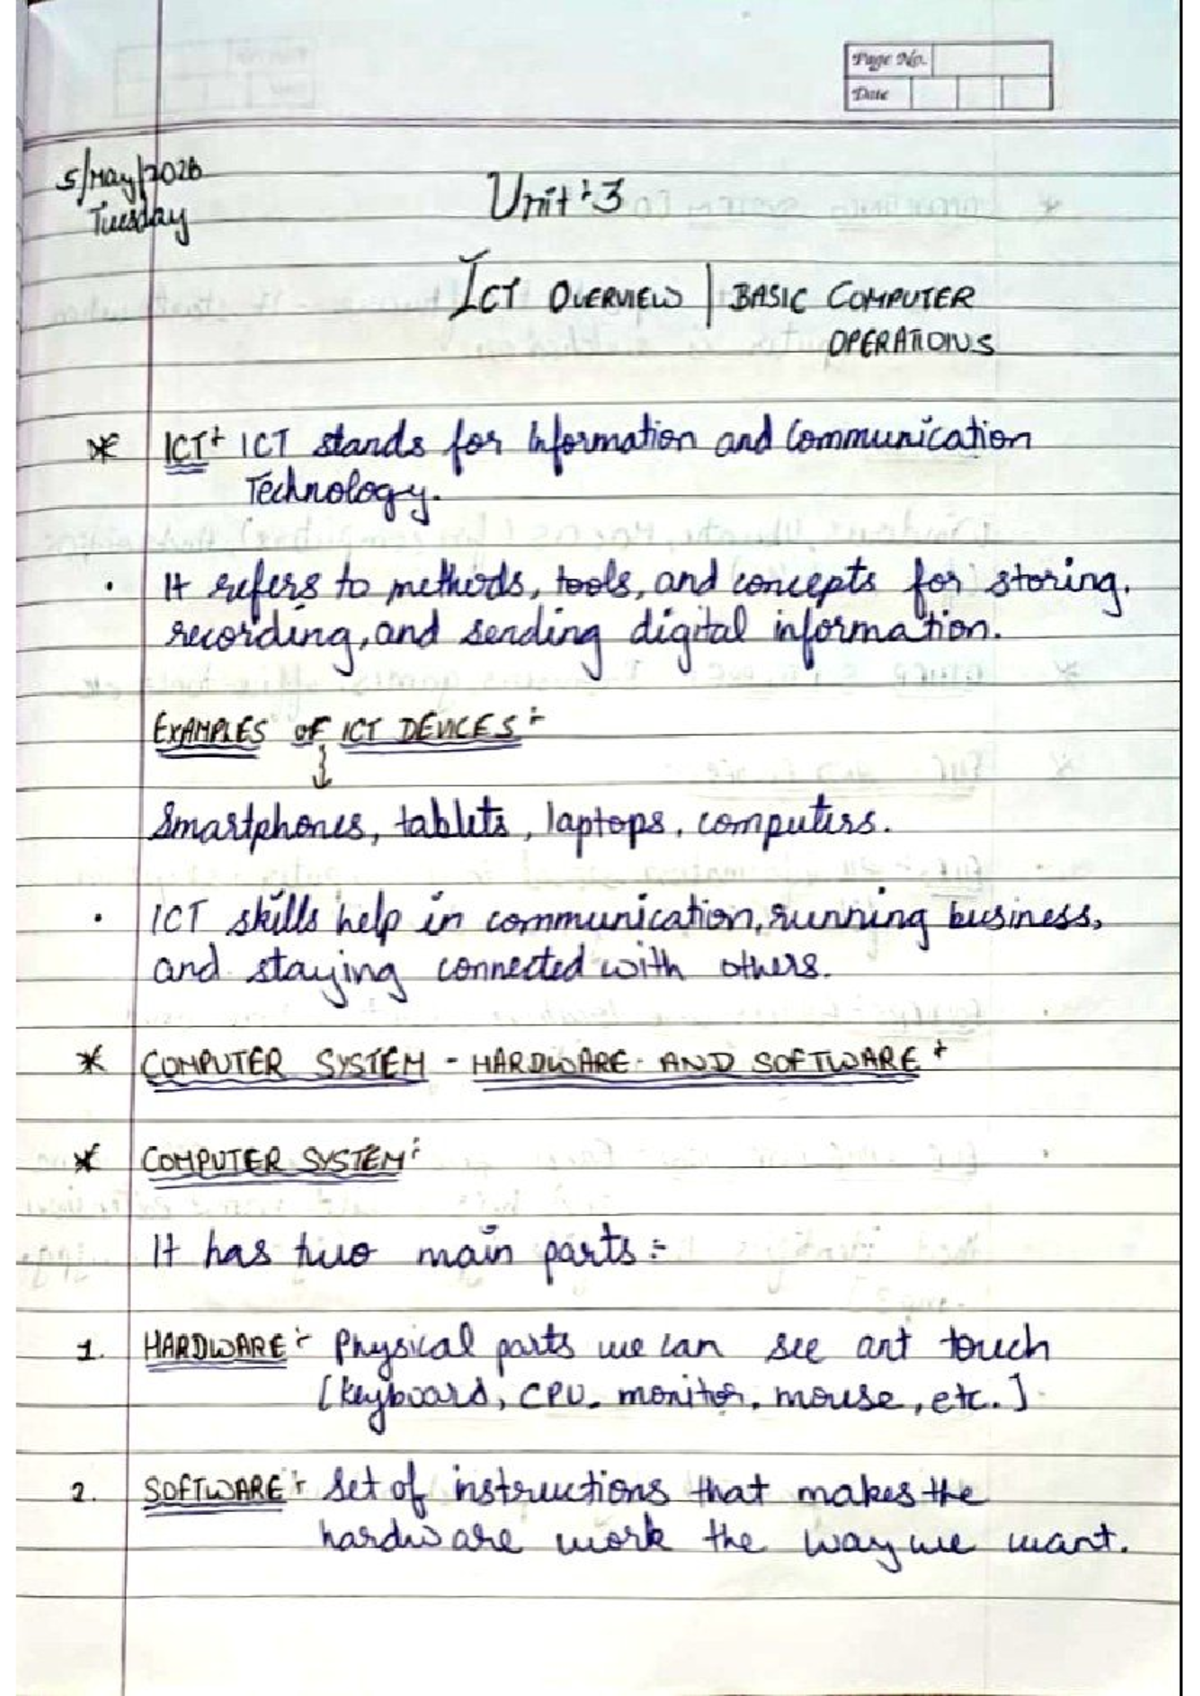 Page No.
Date
5/May/2026
Tuesday
Unit:3
ICT OVERVIEW | BASIC COMPUTER
OPERATIONS
* ICT:- ICT stands for Information and Communication
Technology.
• It refers to methods, tools, and concepts for storing,
recording, and sending digital information.
EXAMPLES OF ICT DEVICES:-
↓
Smartphones, tablets, laptops, computers.
• ICT skills help in communication, running business,
and staying connected with others.
* COMPUTER SYSTEM - HARDWARE AND SOFTWARE:-
* COMPUTER SYSTEM:-
It has two main parts:-
1. HARDWARE:- Physical parts we can see ant touch
[Keyboard, CPU, monitor, mouse, etc.]
2. SOFTWARE:- Set of instructions that makes the
hardware work the way we want.